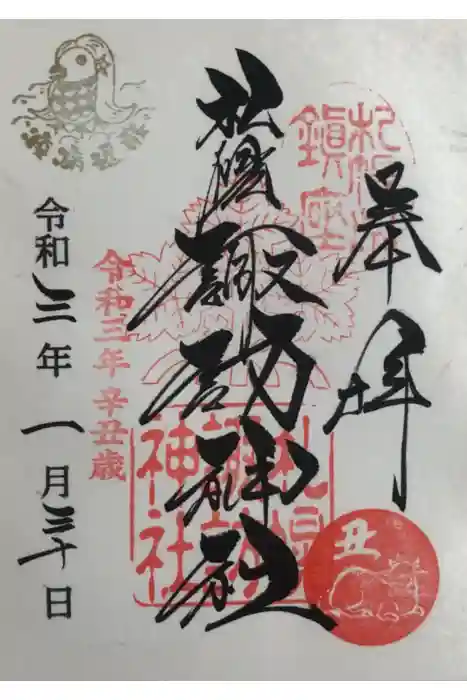 奉拝
鎮座
札幌諏訪神社
札幌諏訪神社
丑
令和三年辛丑歳
令和三年一月三十日